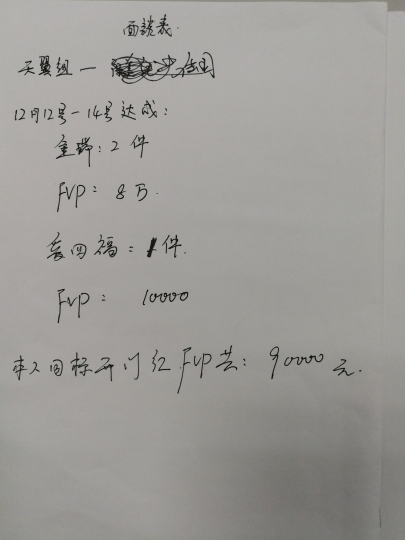 面谈表
天翼组一
12月12号-14号达成:
重疾:2件
FVP: 8万.
福:1件.
FVP: 10000
本人目标开门红FVP共:90000元.